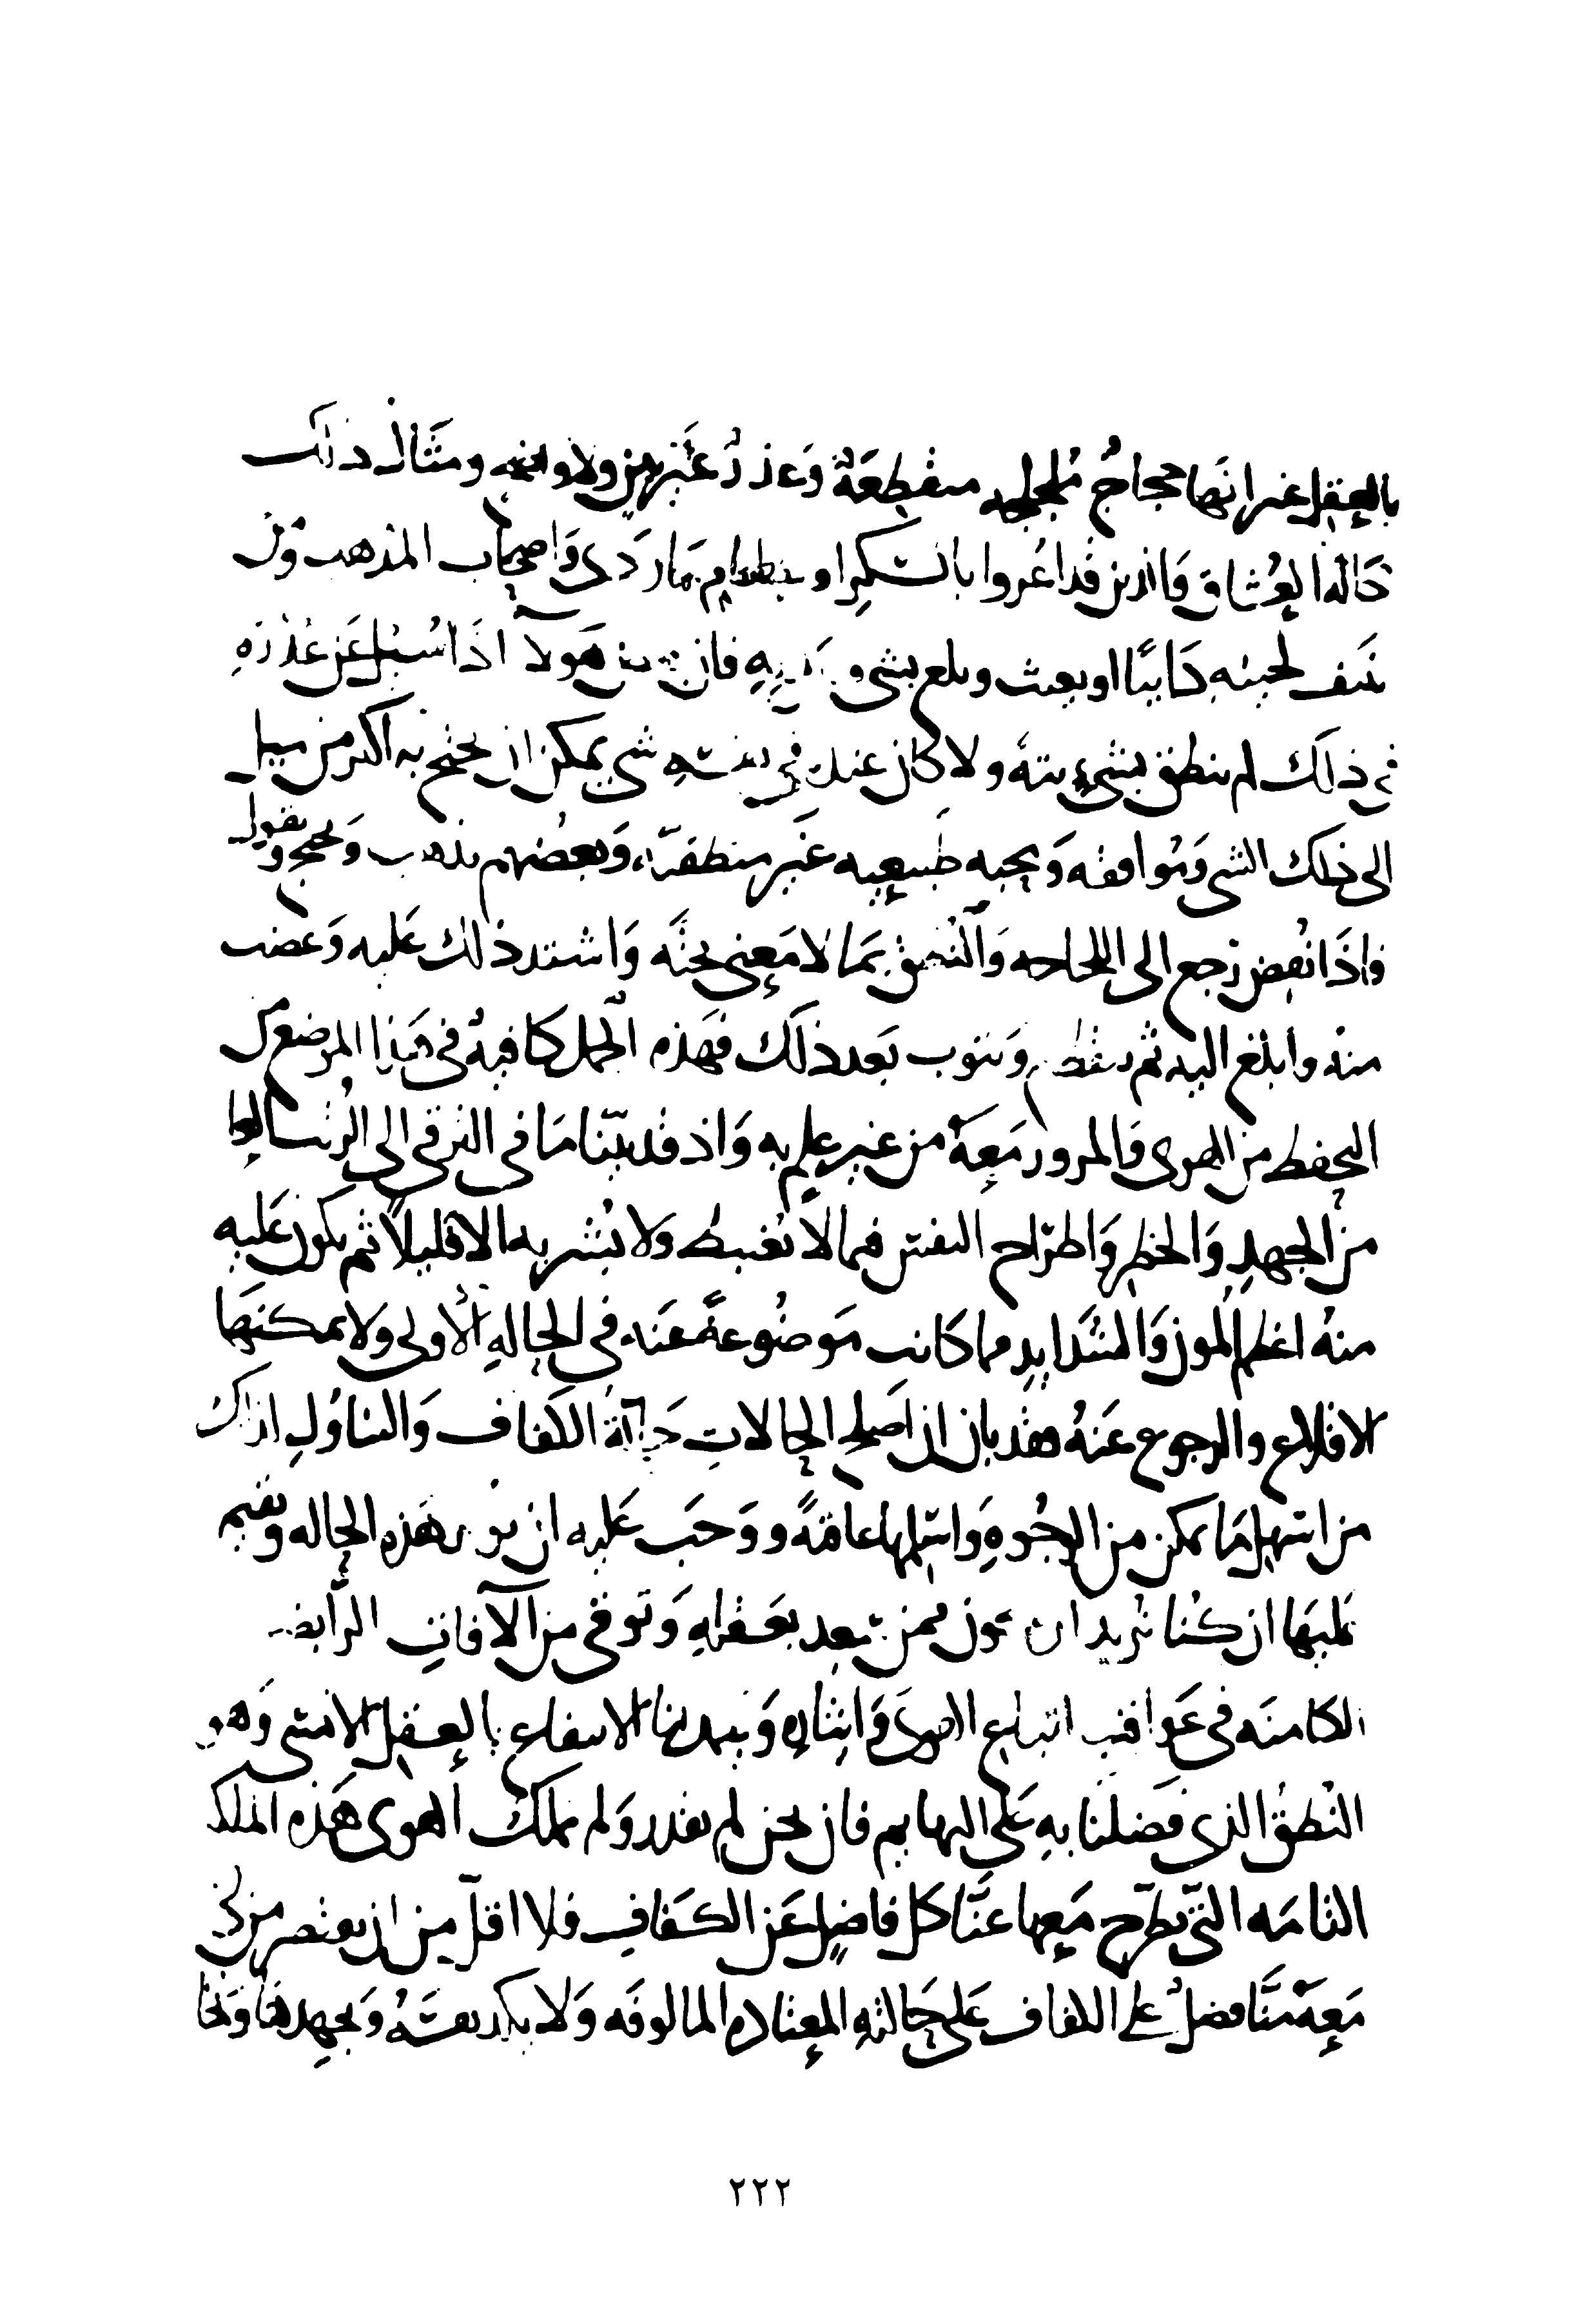 بالعقل غير انها حجاج ملجلجه منقطعة وعذر غير بين ولا واضح ومثال ذلك
حالة العشاق والذين قد اغروا بالسكر او بطعام ما ردى واصحاب المذهب ومن
ينتف لحيته دايبًا او يعبث ويلع بشى فان من هولآ اذا سئل عن عذره
فى ذلك لم ينطق بشىء بتة ولا كان عنده فى نفسه شى يمكن ان يحتج به اكثر من ميل
الى ذلك الشى وموافقه ومحبه طبيعيه غير منطقية، وبعضهم يذهب ويحتج ويقول
فاذا نقض رجع الى اللجاجه والتعلق بما لا معنى تحته واشتد ذلك عليه وغضب
منه وابلغ اليه ثم ينقطع ويتوب بعد ذلك فهذه الجمل كافية فى هذا الموضع من
التحفظ من الهوى والمرور معه من غير علم به واذ قد بينا ما فى الترقى الى الرتب العليا
من الجهد والخطر واطراح النفس فيما لا تغتبط ولا تسر به الا قليلا ثم يكون عليه
منه اعظم المون والشدايد مما كانت موضوعة عنه فى الحالة الاولى ولا يمكنها
الاقلاع والرجوع عنه فقد بان ان اصلح الحالات حالة الكفاف والتناول لذلك
من اسهل ما يمكن من الوجوه واسلمها عاقبة ووجب عليه ان نوثر هذه الحاله ونقيم
عليها ان كنا نريد ان نكون ممن سعد بعقله وتوقى من الآفات الرابضه
الكامنه فى عواقب اتباع الهوى وايثاره ويتهيا لنا الانتفاع بالعقل الانسى وهو
النطق الذى فضلنا به على البهايم فان نحن لم نقدر ولم نملك الهوى هذه الملكه
التامه التى نطرح معها عنا كل فاضل عن الكفاف فلا اقل من ان يقتصر من كان
معه منا فضل على الكفاف على حالته المعتاده المالوفه ولا يكد نفسه ويجهدها
٢٢٢